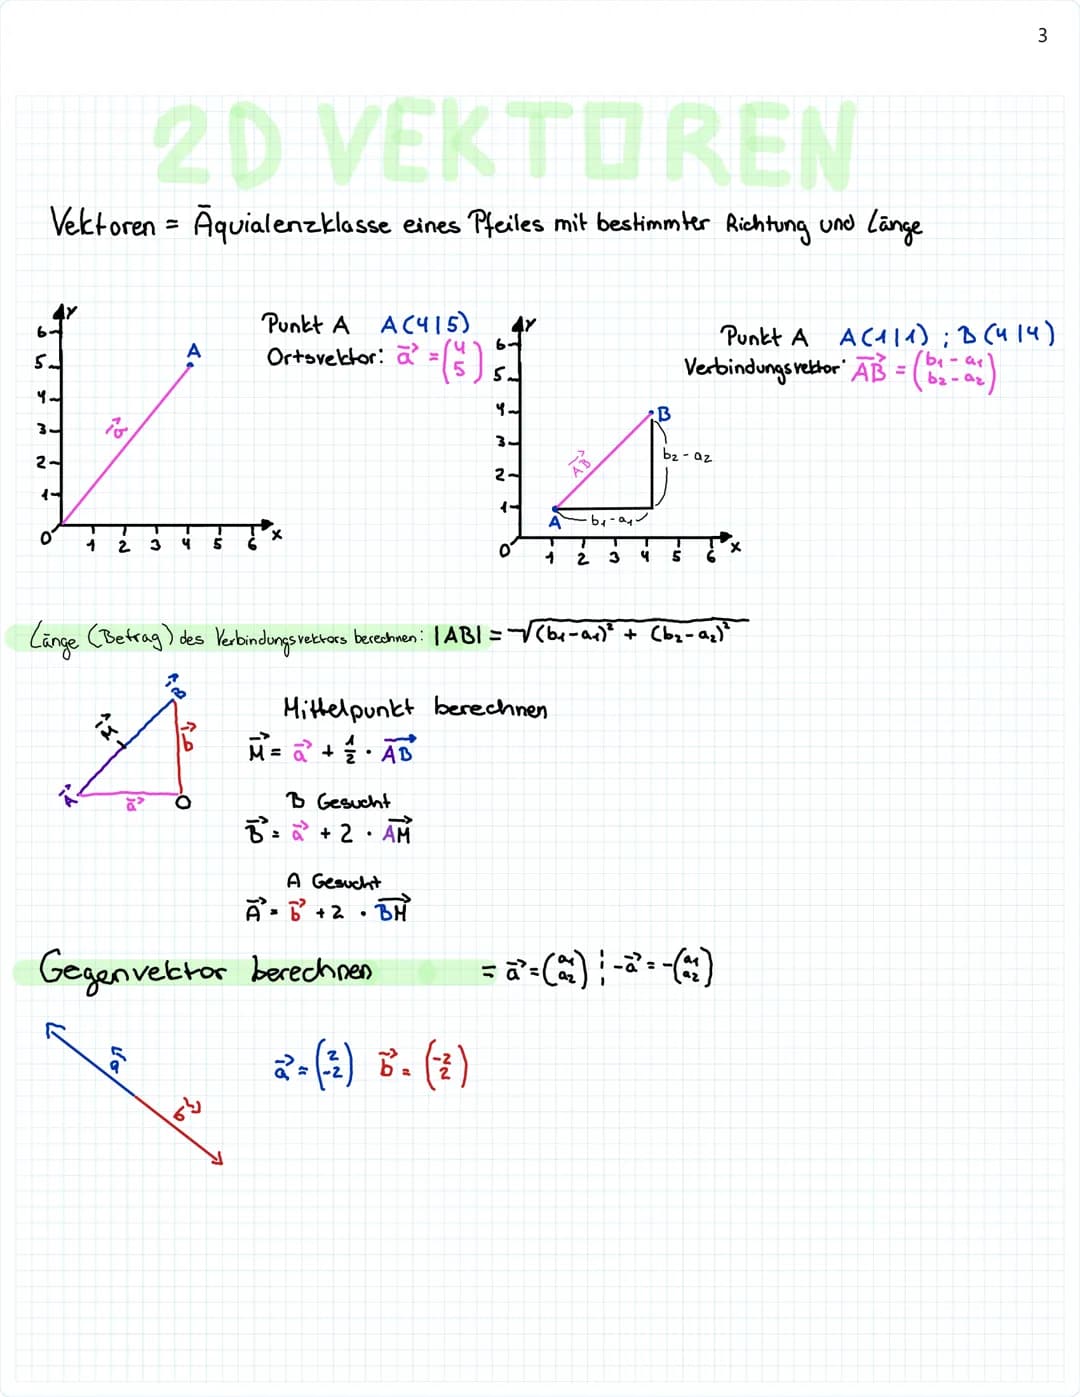 3
2D VEKTOREN
Vektoren = Äquialenzklasse eines Pfeiles mit bestimmter Richtung und Länge
Punkt A A(4|5)
Ortsvektor: a⃗ = (4 5)
y
6
5
4
3
2
1
0
1 2 3 4 5 6 x
A
a⃗
Punkt A A(1|1) ; B(4|4)
Verbindungsvektor: AB⃗ = (b₁-a₁ b₂-a₂)
y
6
5
4
3
2
1
0
1 2 3 4 5 6 x
B
AB⃗
b₂-a₂
A
b₁-a₁
Länge (Betrag) des Verbindungsvektors berechnen: |AB| = √(b₁-a₁)² + (b₂-a₂)²
B⃗
M⃗
b⃗
A⃗
a⃗
O
Mittelpunkt berechnen
M⃗ = a⃗ + 1/2 · AB⃗
B Gesucht
B⃗ = a⃗ + 2 · AM⃗
A Gesucht
A⃗ = b⃗ + 2 · BM⃗
Gegenvektor berechnen = a⃗ = (a₁ a₂) ¦ -a⃗ = -(a₁ a₂)
a⃗
b⃗
a⃗ = (2 -2) b⃗ = (-2 2)